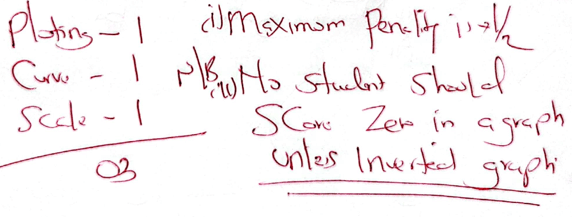 Ploting - 1
Curve - 1
Scale - 1
03
(i) Maximum Penality is → 1/2
N/B
(ii) No student should
Score Zero in a graph
unless Inverted graph